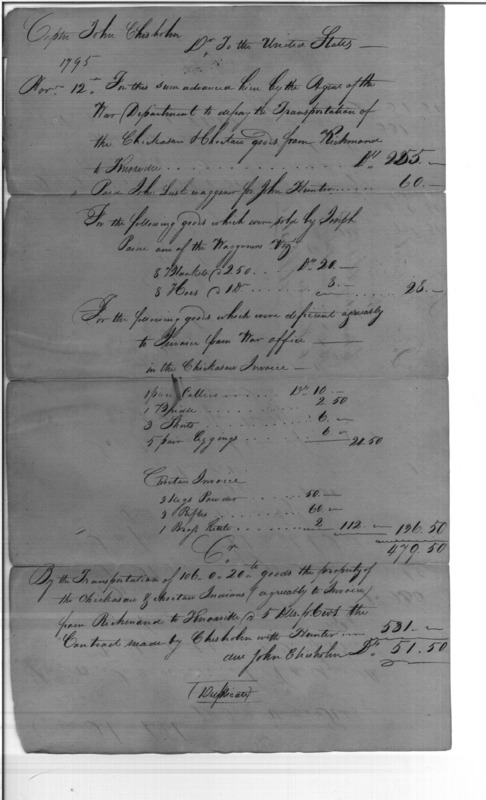 Captn John Chisholm
Dr. To the United States —
1795
Novr. 12th. For this sum advanced him by the Agent of the
War Department to defray the Transportation of
the Chickasaw & Choctaw goods from Richmond
to Knoxville . . . . . . . . . . Drs 255. —
Paid John Lusk waggoner for John Hunter . . . . 60. —
For the following goods which were sold by Joseph
one of the Waggoners Viz
8 Blankets @ 2 50 . . . Drs 20. —
8 Hoes @ 1 Dr . . . . . 8. — . . . . . 28. —
For the following goods which were deficient agreeably
to Invoice from War office —
in the Chickasaw Invoice —
1 pair . . . . . . Drs 10. —
1 Bridle . . . . . . . 2 50
3 Shirts . . . . . . . 6. —
5 pair leggings . . . . 6 — 24.50
Choctaw Invoice
2 kegs Powder . . . . . 50. —
3 Rifles . . . . . . . 60. —
1 Brass Kettle . . . . . 2 112 — 136.50
479.50
Cr.
By the Transportation of 106. 0. 20 lb goods the property of
the Chickasaw & Choctaw Indians (agreeably to Invoice)
from Richmond to Knoxville @ 5 Drs. pr Cwt. the
Contract made by Chisholm with Hunter — 531. —
due John Chisholm Drs. 51.50
(Duplicate)